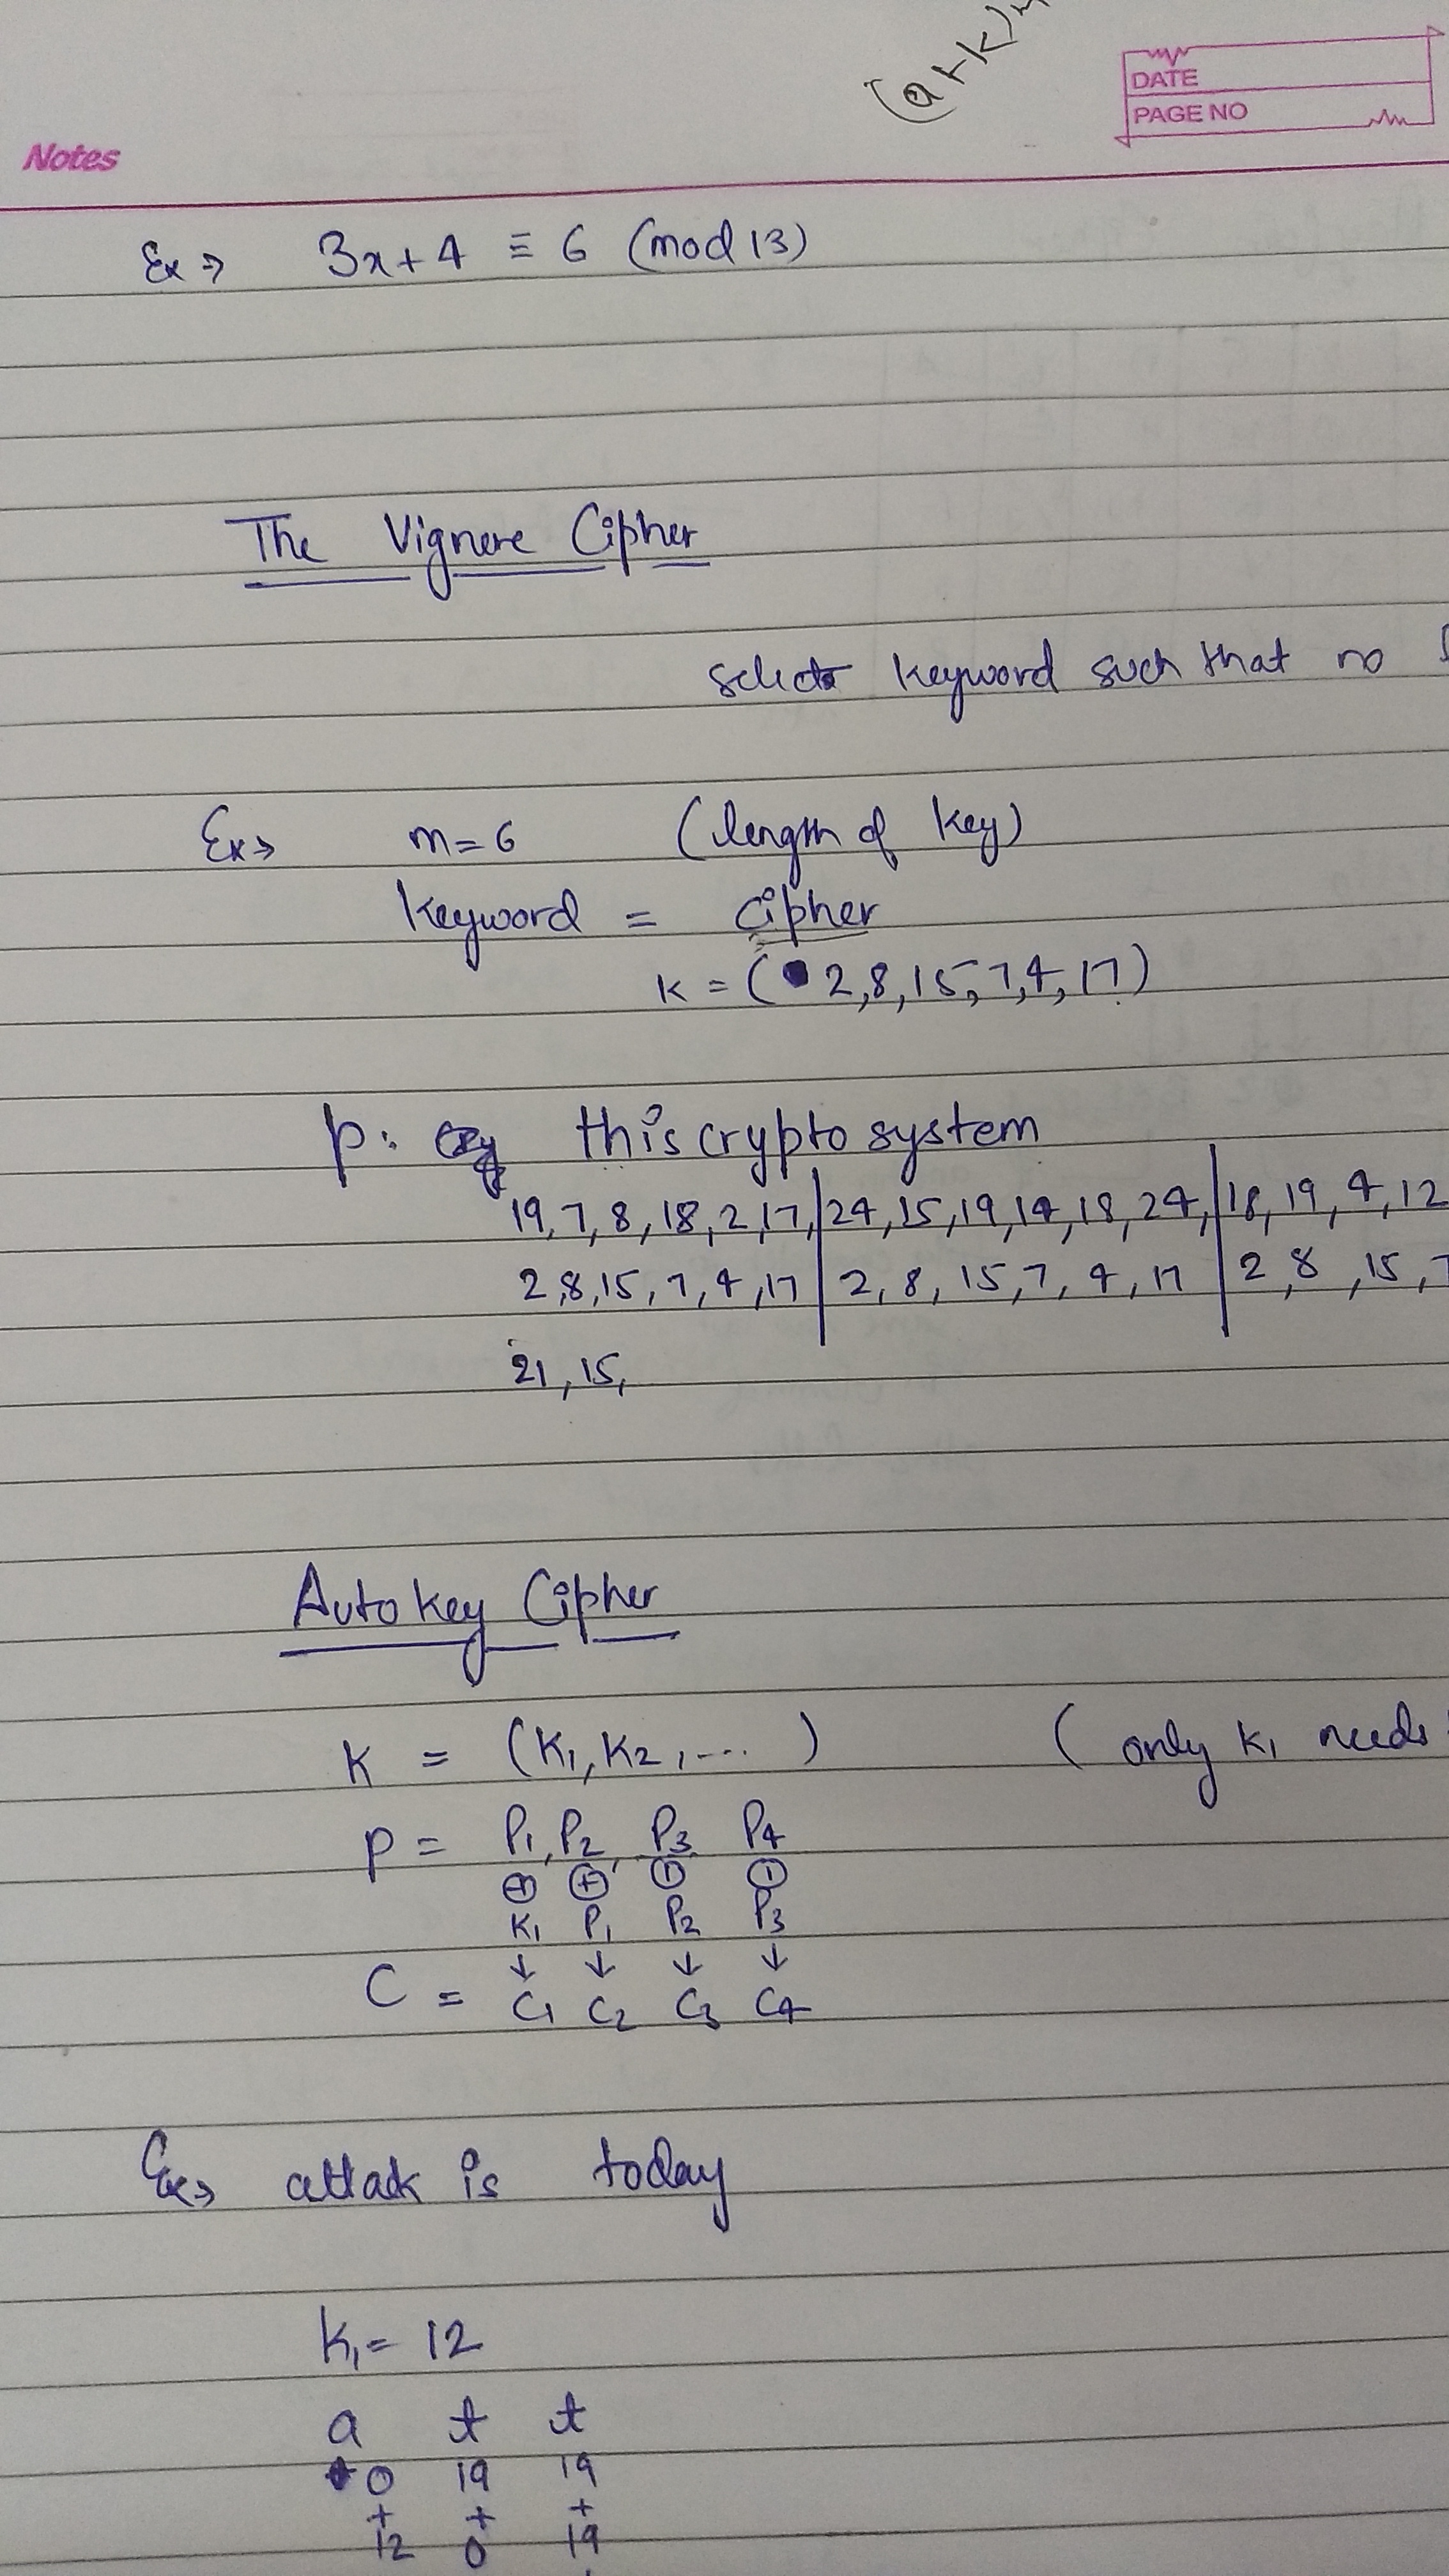 (a+k)
DATE
PAGE NO
Notes
Ex⇒ 3x+4 ≡ 6 (mod 13)
The Vignere Cipher
select keyword such that no
Ex⇒ m=6 (length of key)
keyword = cipher
k = (2,8,15,7,4,17)
p: thiscryptosystem
19,7,8,18,2,17,|24,15,19,14,18,24,|18,19,4,12
2,8,15,7,4,17|2,8,15,7,4,17|2,8,15,7
21,15,
Autokey Cipher
K = (K₁,K₂,...) (only K₁ needs
P = P₁,P₂,P₃ P₄
⊕ ⊕ ⊕ ⊕
K₁ P₁ P₂ P₃
↓ ↓ ↓ ↓
C = C₁ C₂ C₃ C₄
Ex⇒ attack is today
K₁= 12
a t t
0 19 19
+ + +
12 0 19